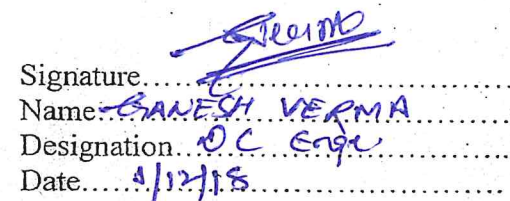 Signature..............................
Name GANESH VERMA
Designation QC Engr
Date...../12/18..............................